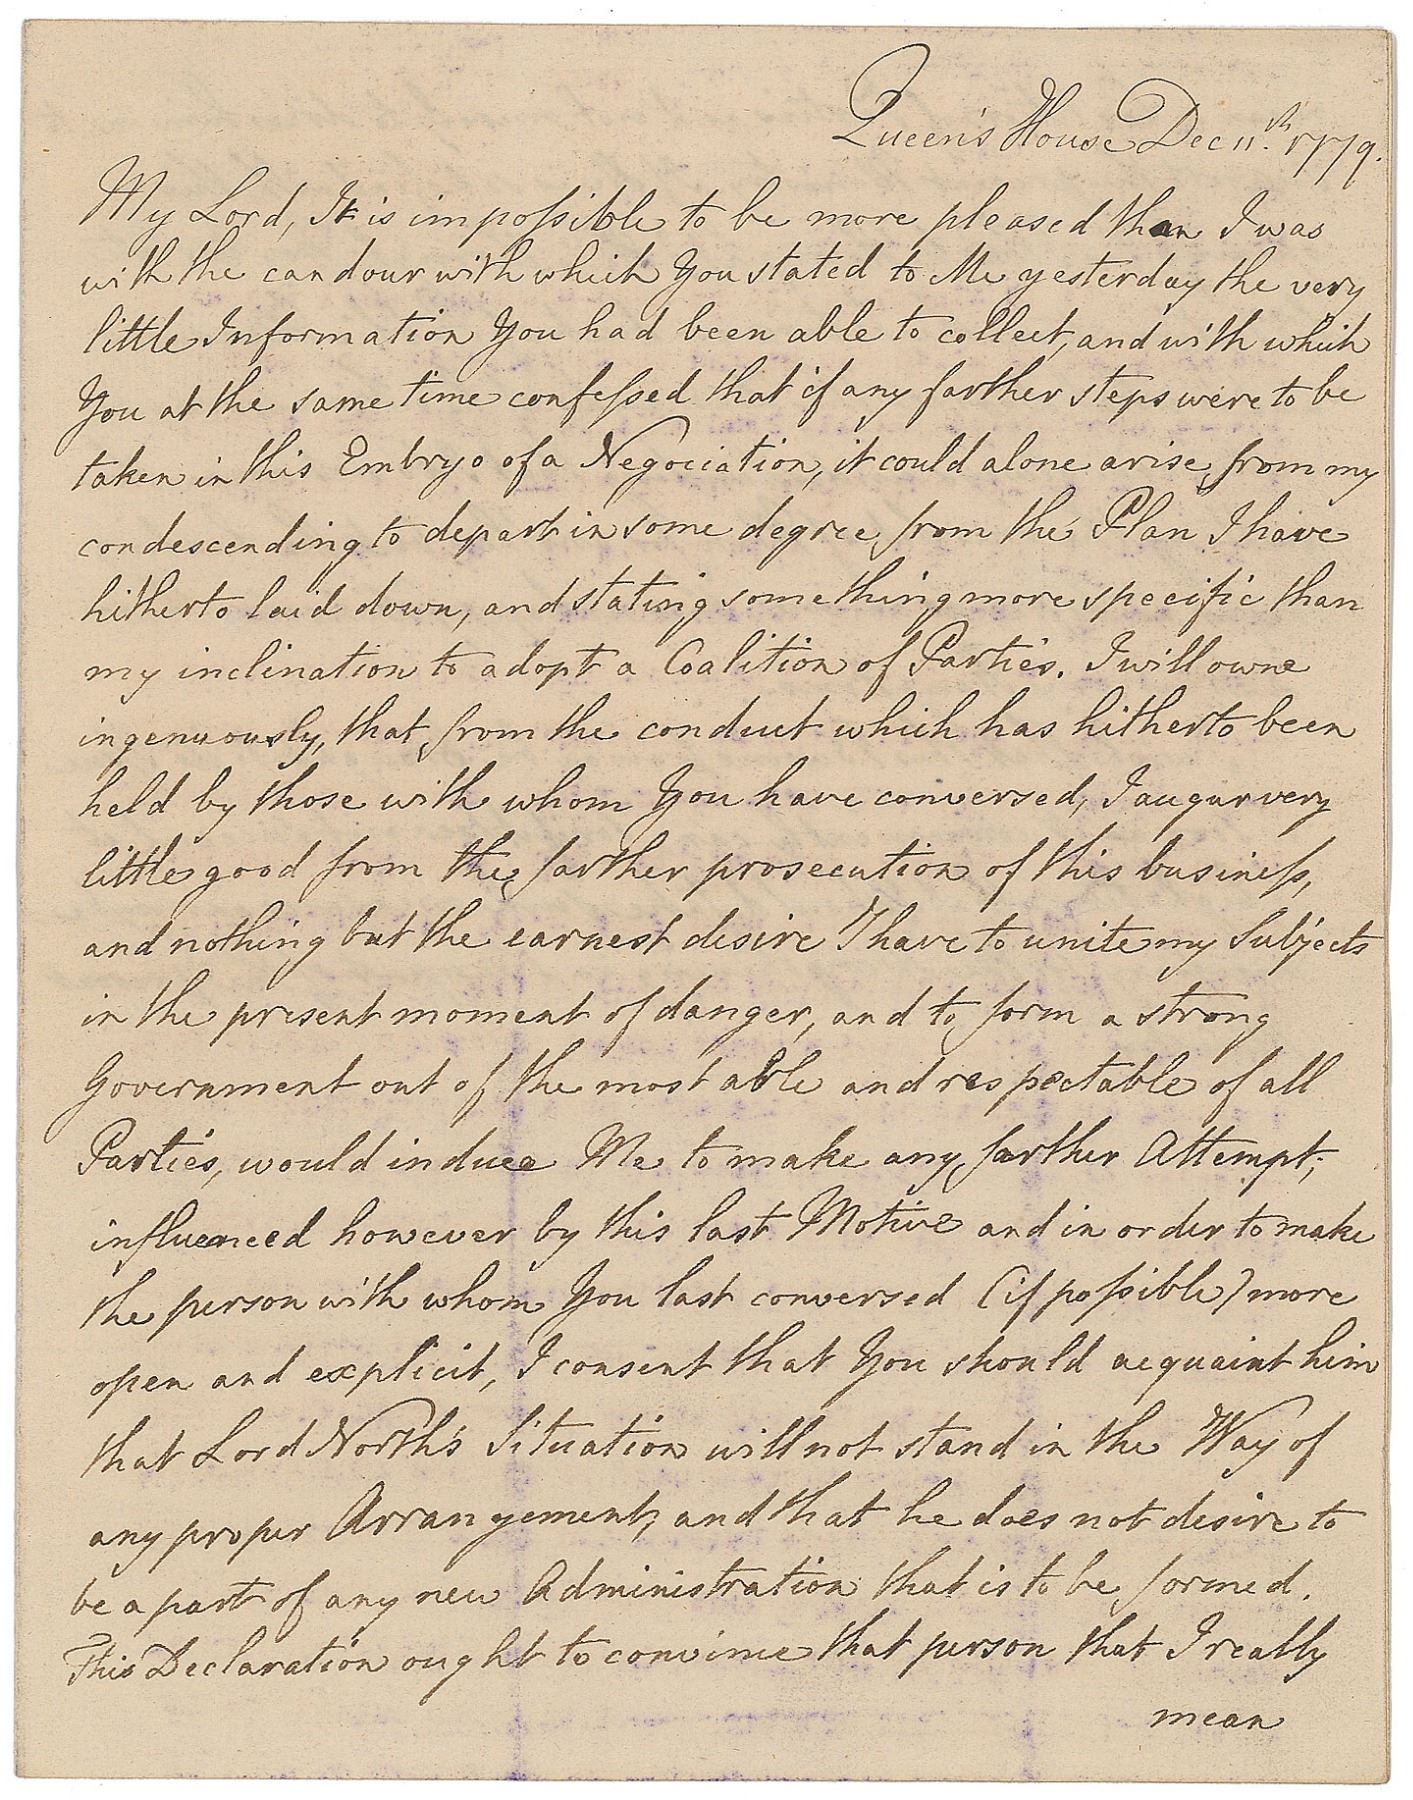 Queen's House Dec 11.th 1779.
My Lord, It is impoſsible to be more pleased than I was
with the candour with which You stated to Me yesterday the very
little Information You had been able to collect, and with which
You at the same time confeſsed that if any farther steps were to be
taken in this Embryo of a Negociation, it could alone arise from my
condescending to depart in some degree from the Plan I have
hitherto laid down, and stating something more specific than
my inclination to adopt a Coalition of Parties. I will owne
ingenuously, that from the conduct which has hitherto been
held by those with whom You have conversed, I augur very
little good from the farther prosecution of this busineſs,
and nothing but the earnest desire I have to unite my Subjects
in the present moment of danger, and to form a strong
Government out of the most able and respectable of all
Parties, would induce Me to make any farther Attempt;
influenced however by this last Motive and in order to make
the person with whom You last conversed (if poſsible) more
open and explicit, I consent that You should acquaint him
that Lord North's Situation will not stand in the Way of
any proper Arrangement, and that he does not desire to
be a part of any new Administration that is to be formed.
This Declaration ought to convince that person that I really
mean